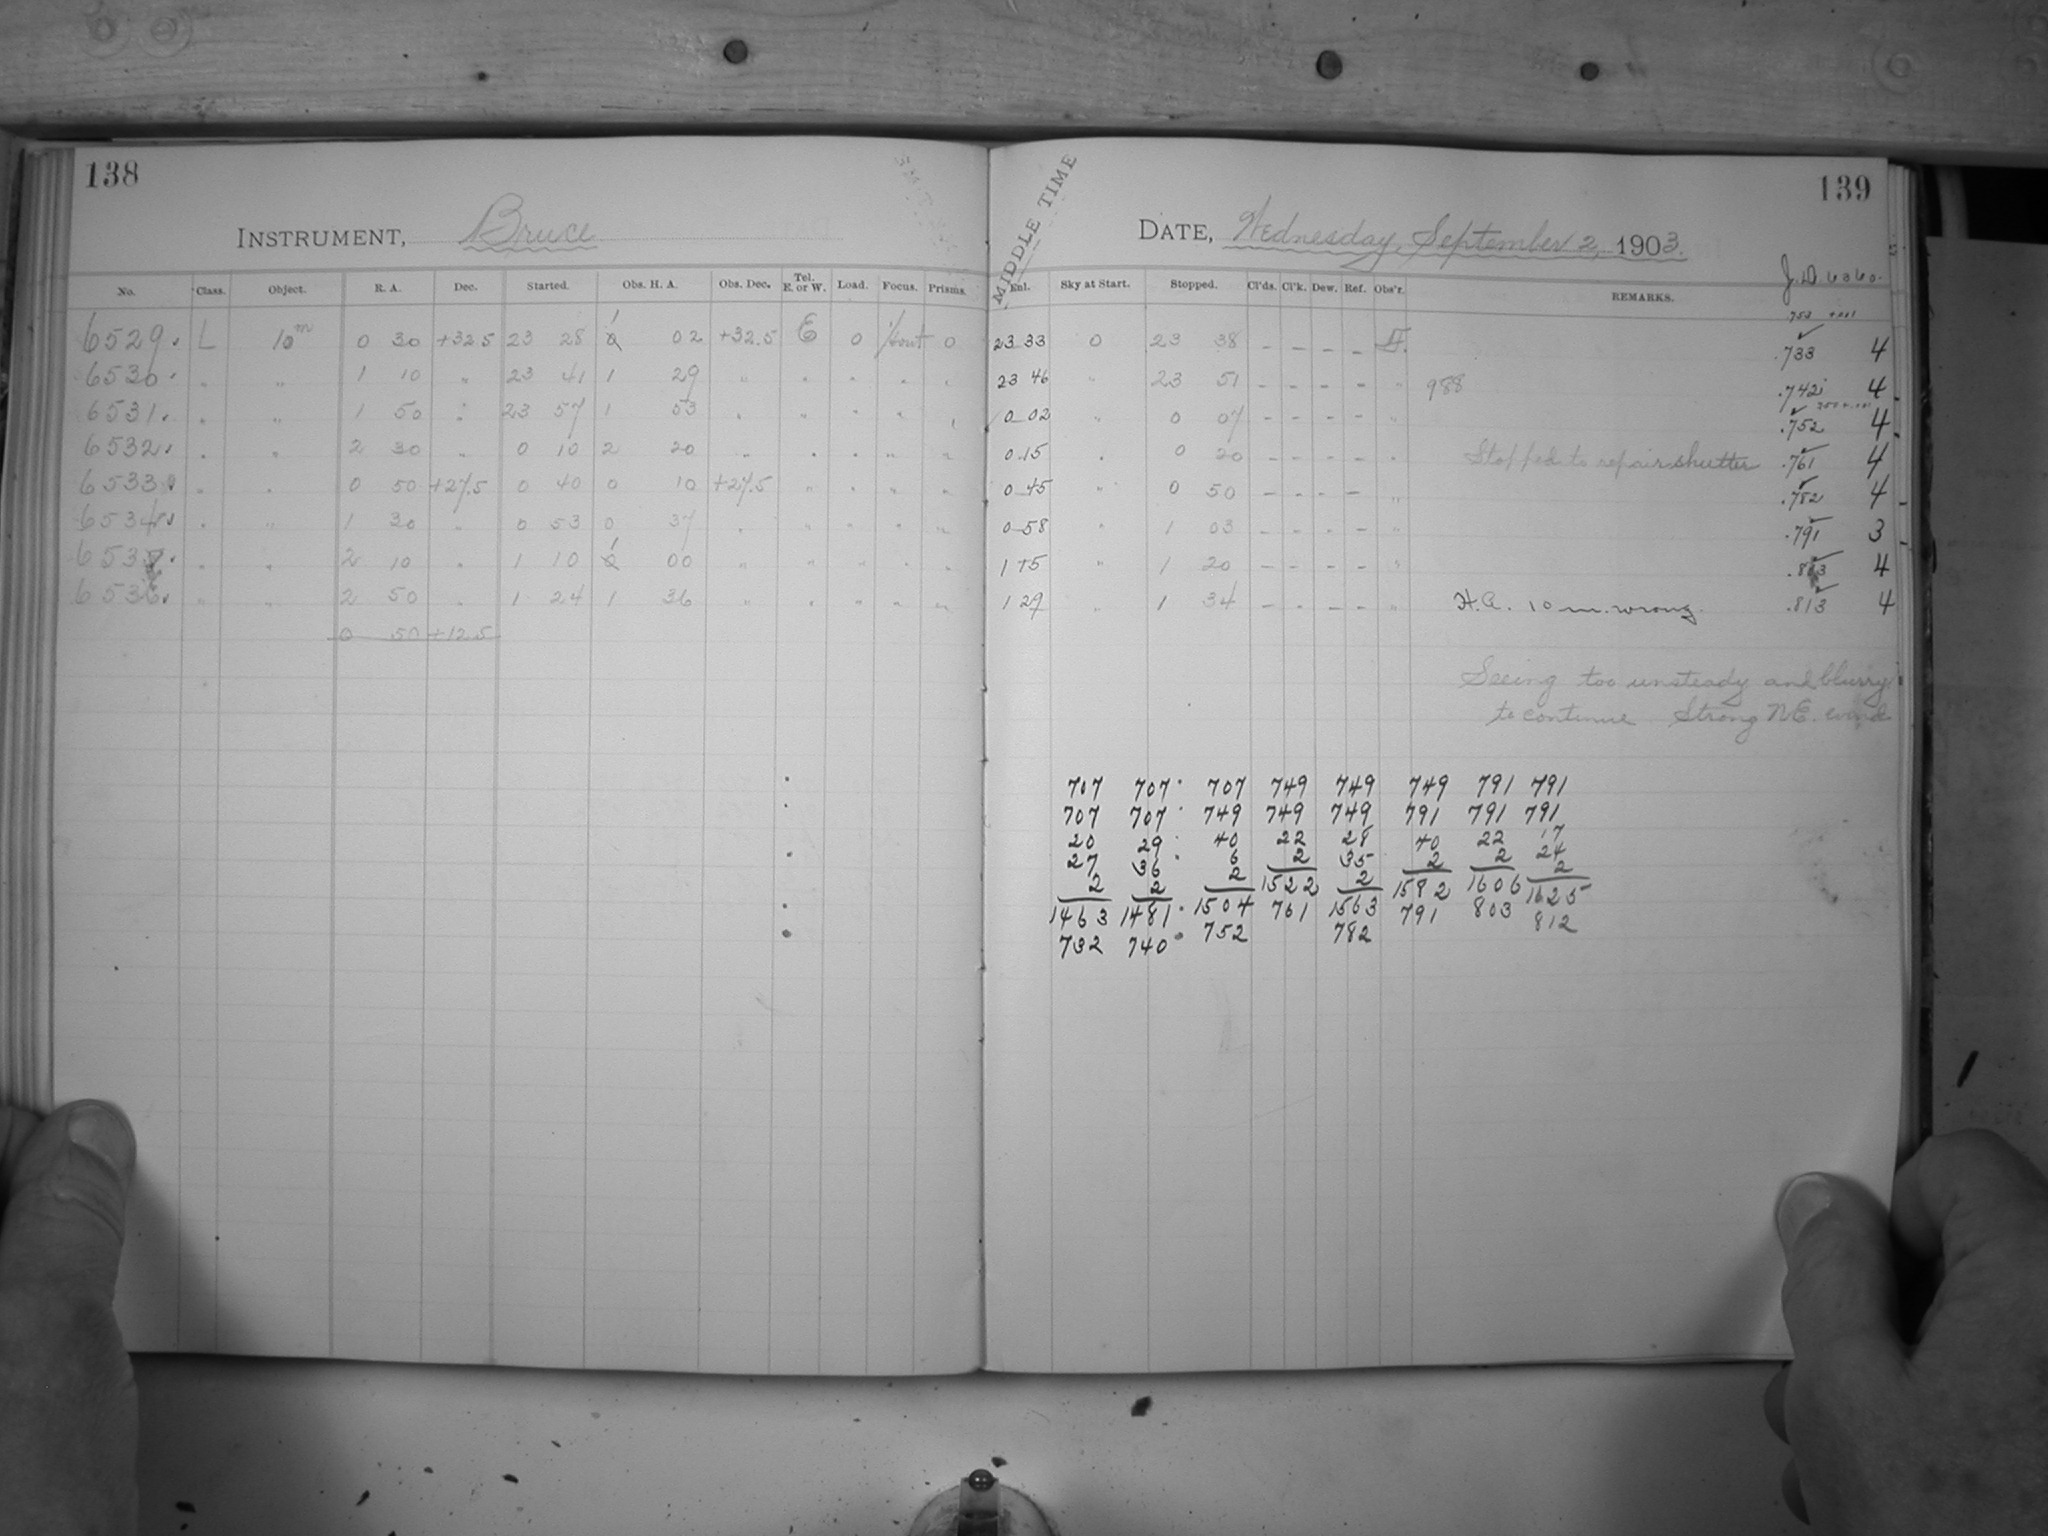 138
INSTRUMENT, Bruce
No. Class. Object. R. A. Dec. Started. Obs. H. A. Obs. Dec. Tel. E. or W. Load. Focus. Prisms.
6529. L 10m 0 30 +32.5 23 28 1 02 +32.5 E 0 0
6530. " " 1 10 " 23 41 1 29 " " " " "
6531. " " 1 50 " 23 57 1 53 " " " " "
6532. " " 2 30 " 0 10 2 20 " " " " "
6533. " " 0 50 +27.5 0 40 0 10 +27.5 " " " "
6534. " " 1 30 " 0 53 0 37 " " " " "
6535. " " 2 10 " 1 10 1 00 " " " " "
6536. " " 2 50 " 1 24 1 36 " " " " "
0 50 +12.5
139
MIDDLE TIME
DATE, Wednesday, September 2, 1903.
J.D. 6360.
Enl. Sky at Start. Stopped. Cl'ds. Cl'k. Dew. Ref. Obs'r. REMARKS.
23 33 0 23 38 – – – – .733 4
23 46 " 23 51 – – – – " 988 .742 4
0 02 " 0 07 – – – – " .752 4
0 15 " 0 20 – – – – " Stopped to repair shutter .761 4
0 45 " 0 50 – – – – " .782 4
0 58 " 1 03 – – – – " .791 3
1 15 " 1 20 – – – – " .803 4
1 29 " 1 34 – – – – " H.A. 10 m. wrong. .813 4
Seeing too unsteady and blurry
to continue. Strong N.E. wind
707 707 707 749 749 749 791 791
707 707 749 749 749 791 791 791
20 29 40 22 28 40 22 17
27 36 6 2 35 2 2 24
2 2 2 1522 2 1582 1606 2
1463 1481 1504 761 1563 791 803 1625
732 740 752 782 812